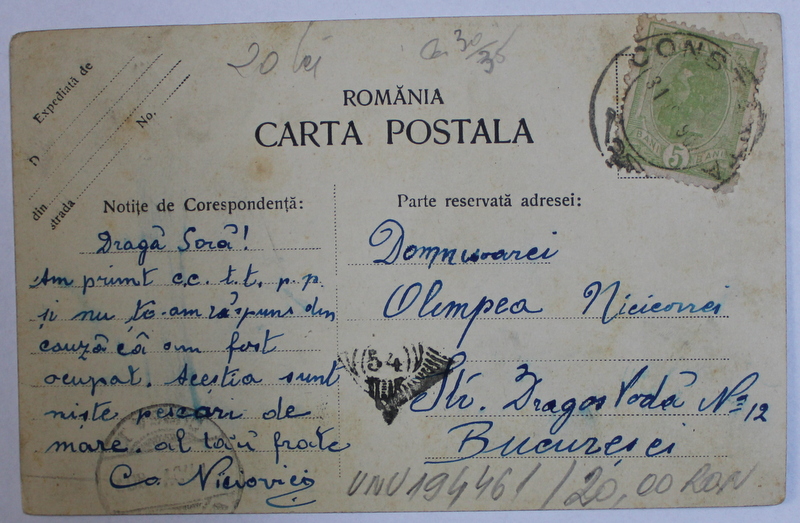 20 lei
30/35
ROMÂNIA
CARTA POSTALA
Expediată de
D
No.
din
strada
CONSTANTA
31
BANI 5 BANI
Notițe de Corespondență:
Dragă Soră!
Am primit c.c. t.t. p.p.
și nu ți-am răspuns din
cauză că am fost
ocupat. Aceștia sunt
niște pescari de
mare. al tău frate
Niciovici
Parte reservată adresei:
Domnisoarei
Olimpea
(54)
Str. Dragoș Vodă No 12
București
VNU194461 / 20,00 RON